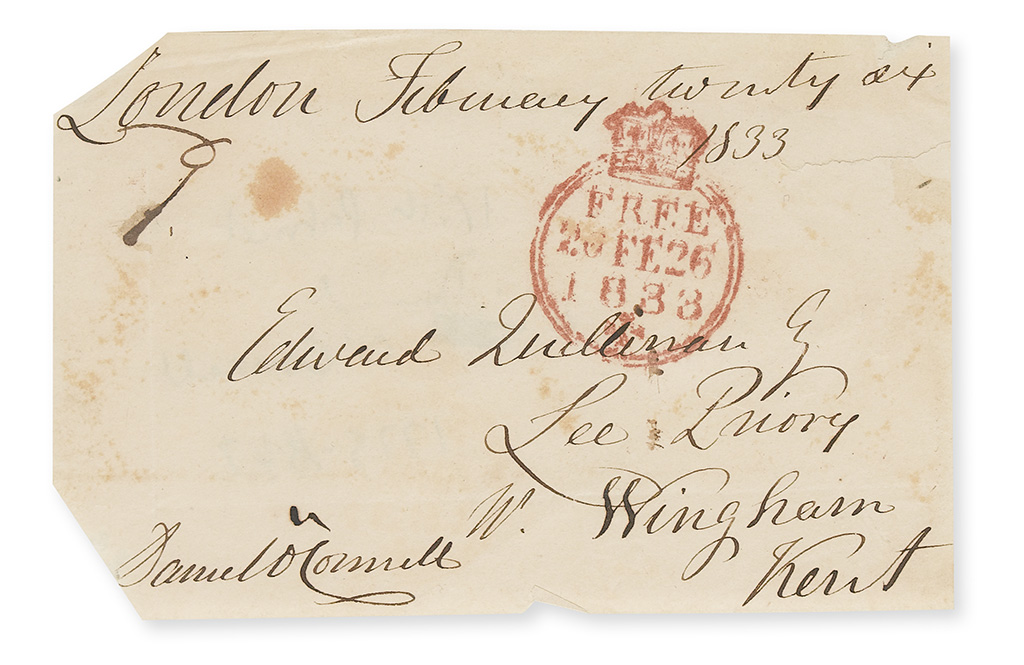 London February twenty six
1833
FREE
26 FE 26
1833
Edward Quillinan Eq
Lee Priory
W. Wingham
Kent
Daniel O'Connell